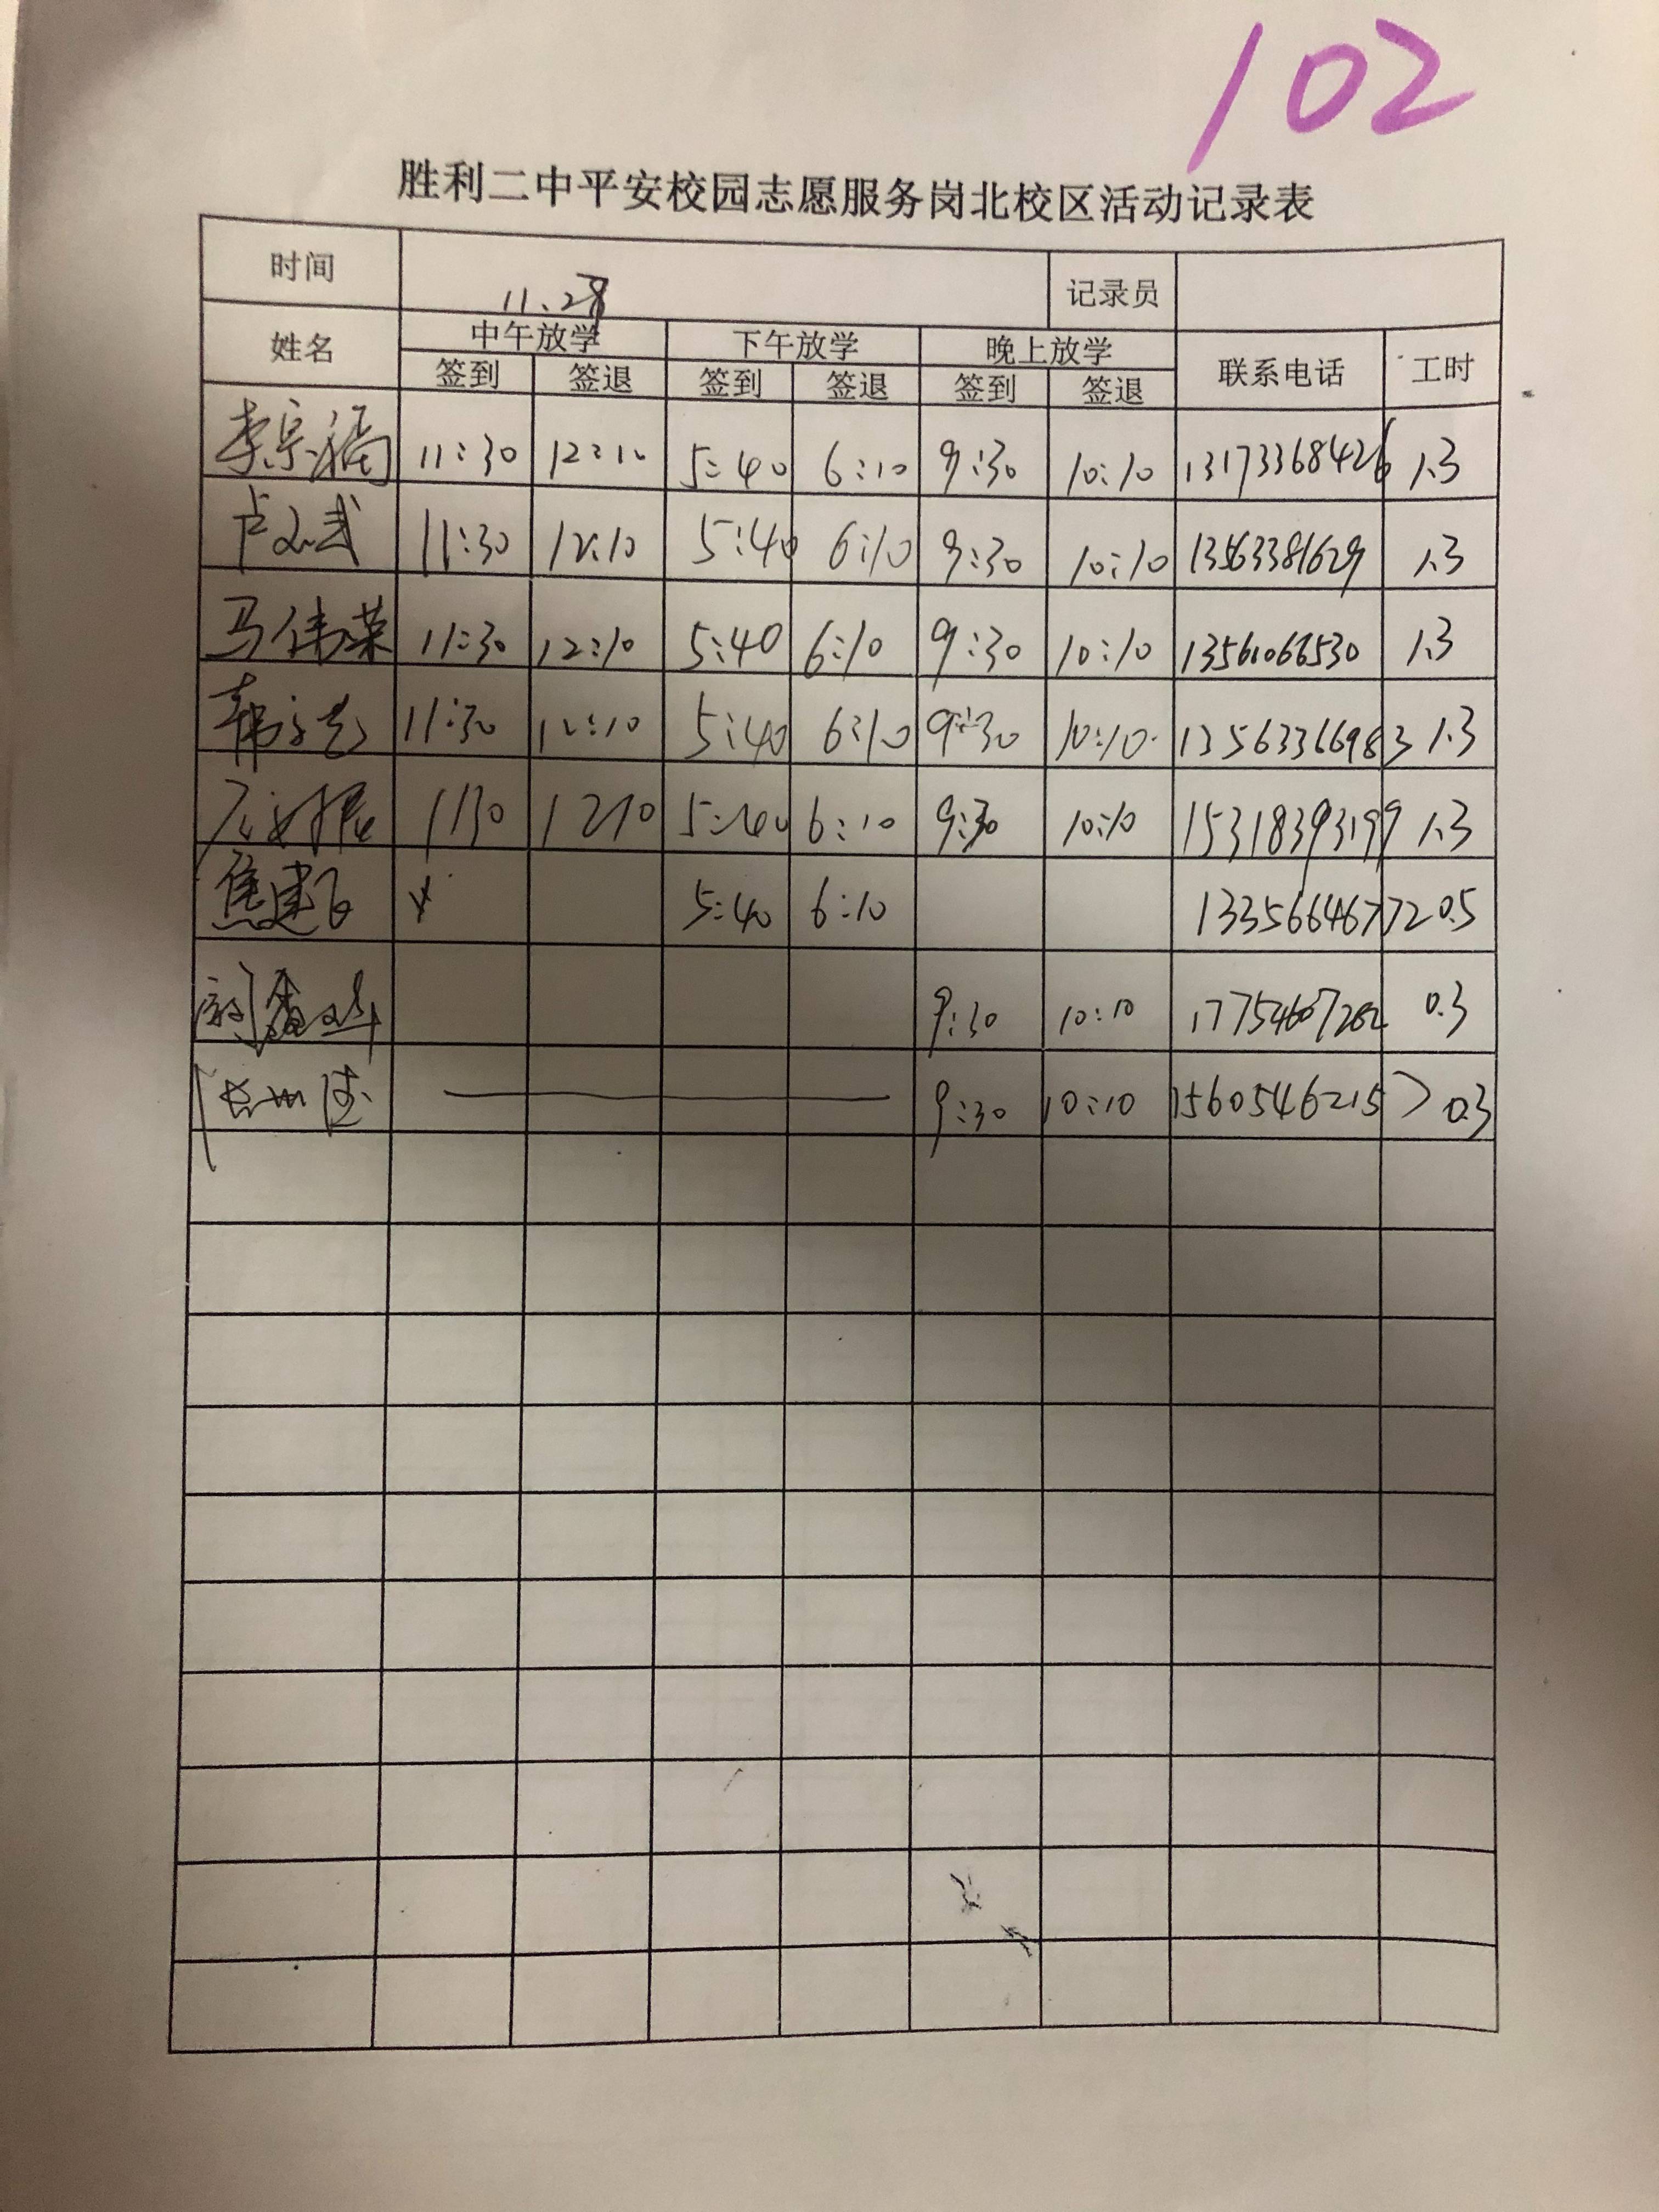 102
胜利二中平安校园志愿服务岗北校区活动记录表
时间 11.28 记录员
姓名 中午放学 下午放学 晚上放学 联系电话 工时
签到 签退 签到 签退 签到 签退
李宗福 11:30 12:10 5:40 6:10 9:30 10:10 13173368426 1.3
卢 武 11:30 12:10 5:40 6:10 9:30 10:10 13563381629 1.3
马伟荣 11:30 12:10 5:40 6:10 9:30 10:10 13561066530 1.3
韩 11:30 12:10 5:40 6:10 9:30 10:10 13563366983 1.3
1130 1210 5:40 6:10 9:30 10:10 15318393199 1.3
焦建飞 5:40 6:10 13356646772 0.5
9:30 10:10 0.3
9:30 10:10 15605462157 0.3